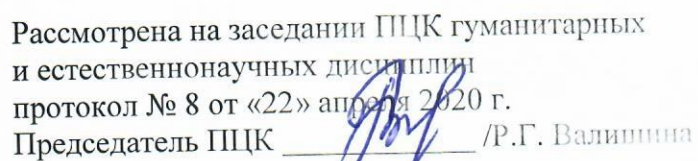 Рассмотрена на заседании ПЦК гуманитарных
и естественнонаучных дисциплин
протокол № 8 от «22» апреля 2020 г.
Председатель ПЦК ______________ /Р.Г. Валишина